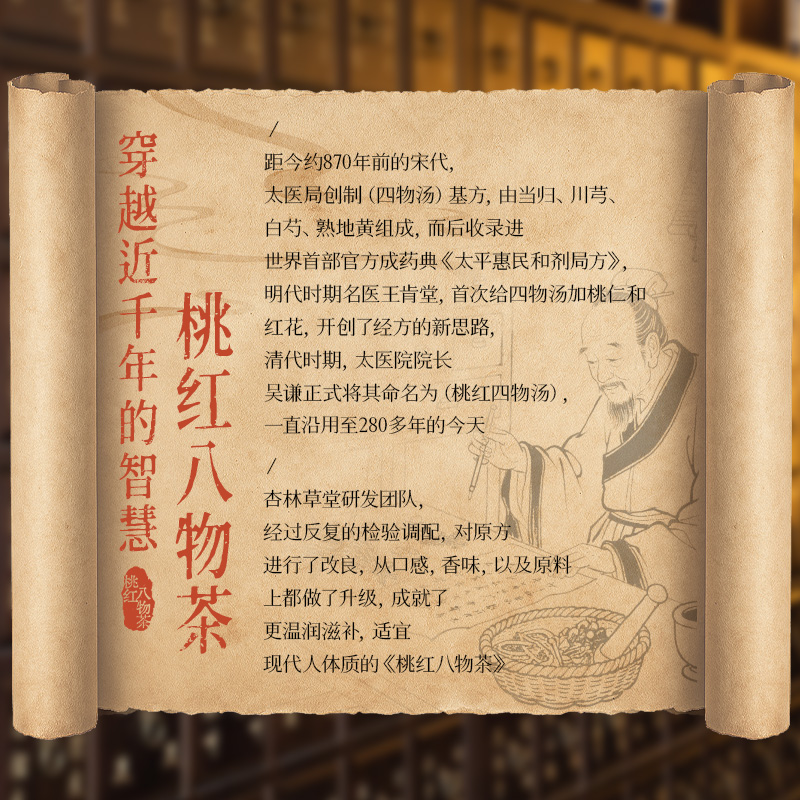 穿越近千年的智慧
桃红八物茶
桃红八物茶
/
距今约870年前的宋代,
太医局创制(四物汤)基方,由当归、川芎、
白芍、熟地黄组成,而后收录进
世界首部官方成药典《太平惠民和剂局方》,
明代时期名医王肯堂,首次给四物汤加桃仁和
红花,开创了经方的新思路,
清代时期,太医院院长
吴谦正式将其命名为(桃红四物汤),
一直沿用至280多年的今天
/
杏林草堂研发团队,
经过反复的检验调配,对原方
进行了改良,从口感,香味,以及原料
上都做了升级,成就了
更温润滋补,适宜
现代人体质的《桃红八物茶》